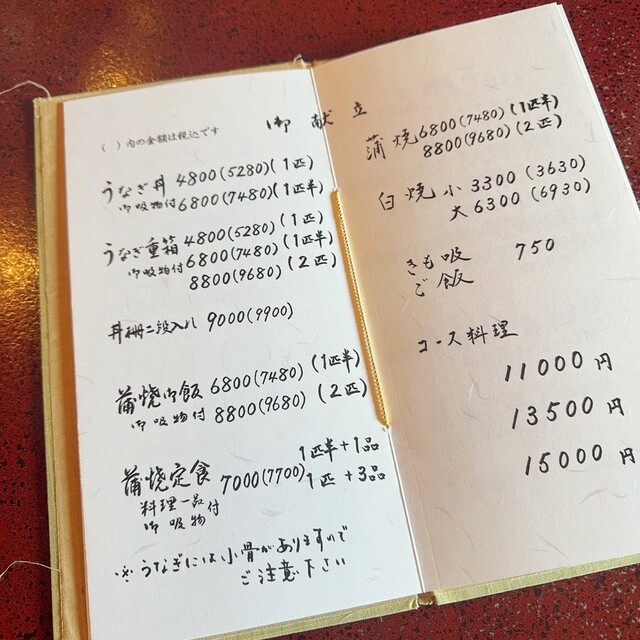 御献立
( )内の金額は税込です
うなぎ丼 4800(5280)(1匹)
御吸物付 6800(7480)(1匹半)
うなぎ重箱 4800(5280)(1匹)
御吸物付 6800(7480)(1匹半)
8800(9680)(2匹)
丼 二段入り 9000(9900)
蒲焼御飯 6800(7480)(1匹半)
御吸物付 8800(9680)(2匹)
1匹半+1品
蒲焼定食 7000(7700) 1匹+3品
料理一品付
御吸物
※うなぎには小骨がありますので
ご注意下さい
蒲焼 6800(7480)(1匹半)
8800(9680)(2匹)
白焼 小 3300(3630)
大 6300(6930)
きも吸 750
ご飯
コース料理
11000円
13500円
15000円